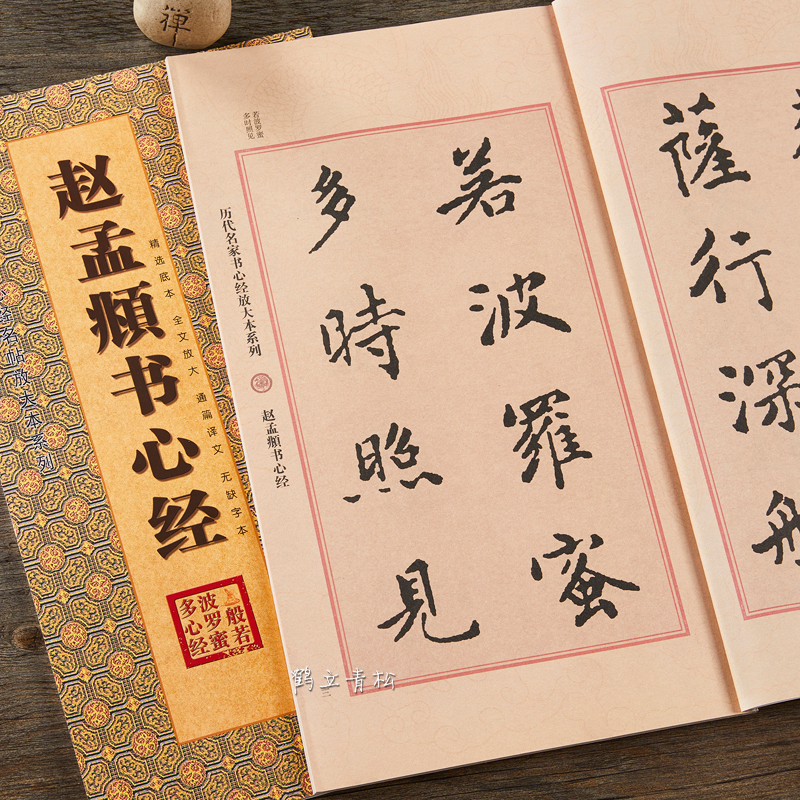 禪
赵孟頫书心经
精选底本 全文放大 通篇译文 无缺字本
经名帖放大本系列
般若
波罗蜜
多心经
薩行深般
若波羅蜜
多時照見
若波罗蜜
多时照见
历代名家书心经放大本系列 赵孟頫书心经
三
鹤立青松